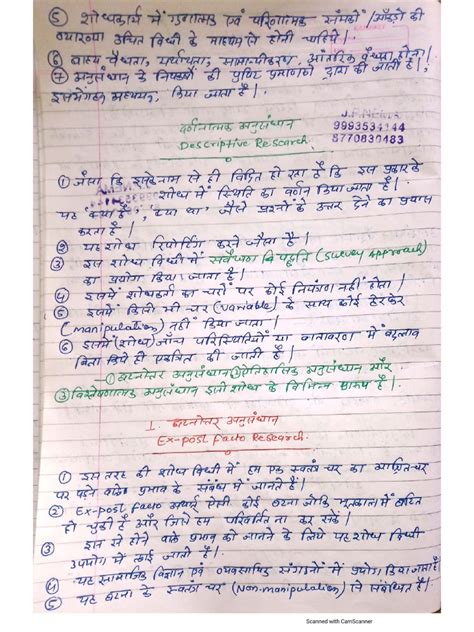 ⑤ शोधकार्य में गुणात्मक एवं परिणात्मक संमकों/आँकड़ों की
व्याख्या उचित विधी के माध्यम से होनी चाहिये।
⑥ वाह्य वैधता, यथार्थता, सामान्यीकरण, आंतरिक वैधता होना।
⑦ अनुसंधान के निष्कर्षों की पुष्टि प्रमाणको द्वारा की जाती है।
अध्ययन, किया जाता है।
9993534144
8770830483
वर्णनात्मक अनुसंधान
Descriptive Research.
① जैसा कि इसके नाम से ही विदित हो रहा है कि इस प्रकार के
शोध में स्थिति का वर्णन किया जाता है।
यह 'क्या है', 'क्या था' जैसे प्रश्नों के उत्तर देने का प्रयास
करता है।
② यह शोध रिपोर्टिंग करने जैसा है।
③ इस शोध विधी में सर्वेक्षण विपद्दति (Survey Approach)
का प्रयोग किया जाता है।
④ इसमें शोधकर्ता का चरों पर कोई नियंत्रण नहीं होता।
⑤ इसमें किसी भी चर (variable) के साथ कोई हेरफेर
(manipulation) नहीं किया जाता।
⑥ इसमें (शोध) जाँच परिस्थितियों या वातावरण में बदलाव
बिना किये ही एकत्रित की जाती है।
① घटनोत्तर अनुसंधान ② ऐतिहासिक अनुसंधान और
③ विश्लेषणात्मक अनुसंधान इसी शोध के विभिन्न स्वरूप हैं।
I. घटनोत्तर अनुसंधान
Ex-post facto Research.
① इस तरह की शोध विधी में हम एक स्वतंत्र चर का आश्रित-चर
पर पड़ने वाले प्रभाव के संबंध में जानते हैं।
② Ex-post facto अर्थात ऐसी कोई घटना जोकि भूतकाल में घटित
हो चुकी है और जिसे हम परिवर्तित ना कर सकें।
③ इस से होने वाले प्रभाव को जानने के लिये यह शोध विधी
उपयोग में लाई जाती है।
④ यह सामाजिक विज्ञान एवं व्यवसायिक संगठनों में प्रयोग किया जाता है।
⑤ यह घटना के स्वतंत्र चर (Non-manipulation) से संबंधित है।
Scanned with CamScanner